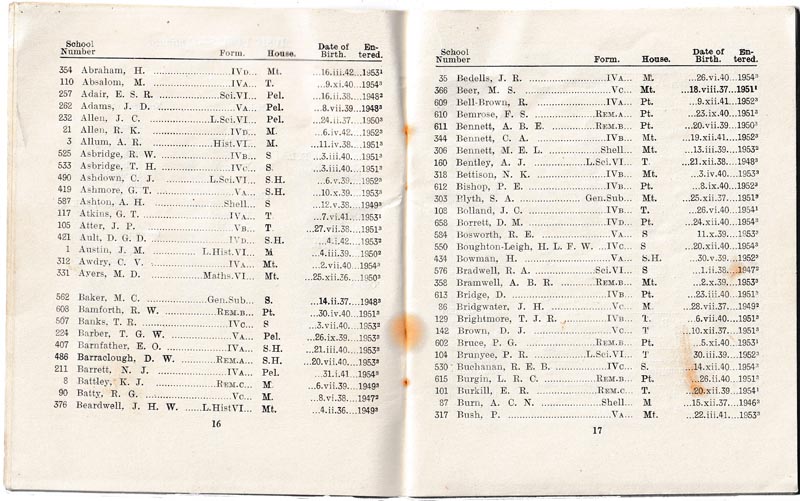 School Number Form. House. Date of Birth. Entered.
354 Abraham, H. ....IVD... Mt. ...16.iii.42...1953¹
110 Absalom, M. ....IVA... T. ...9.xi.40...1954³
257 Adair, E. S. R. ....Sci.VI... Pel. ...16.ii.38...1948³
262 Adams, J. D. ....VA... Pel. ...8.vii.39...1948³
232 Allen, J. C. ....L.Sci.VI... Pel. ...24.ii.37...1950³
21 Allen, R. K. ....IVD... M. ...6.iv.42...1952³
3 Allum, A. R. ....Hist.VI... M. ...11.iv.38...1951³
525 Asbridge, R. W. ....IVB... S ...3.iii.40...1951³
533 Asbridge, T. H. ....IVC... S. ...3.iii.40...1951³
490 Ashdown, C. J. ....L.Sci.VI... S.H. ...6.v.39...1952³
419 Ashmore, G. T. ....VA... S.H. ...10.x.39...1953³
587 Ashton, A. H. ....Shell... S ...12.v.38...1949³
117 Atkins, G. T. ....IVA... T. ...7.vi.41...1953¹
105 Atter, J. P. ....VB... T. ...27.vii.38...1951³
421 Ault, D. G. D. ....IVD... S.H. ...4.i.42...1953³
1 Austin, J. M. ....L.Hist.VI... M ...4.iii.39...1950²
312 Awdry, C. V. ....IVA... Mt. ...2.vii.40...1954³
331 Ayers, M. D. ....Maths.VI... Mt. ...25.xii.36...1950³
562 Baker, M. C. ....Gen.Sub... S. ...14.ii.37...1948³
608 Bamforth, R. W. ....REM.B... Pt. ...30.iv.40...1951³
507 Banks, T. R. ....IVC... S ...3.vii.40...1953³
224 Barber, T. G. W. ....VA... Pel. ...26.ix.39...1953³
407 Barnfather, E. O. ....IVA... S.H. ...21.iii.40...1953³
486 Barraclough, D. W. ....REM.A... S.H. ...20.vii.40...1953³
211 Barrett, N. J. ....IVA... Pel. ...31.i.41...1954³
8 Battley, K. J. ....REM.C... M. ...6.vii.39...1949³
90 Batty, R. G. ....VC... M. ...8.vi.38...1947³
376 Beardwell, J. H. W. ....L.HistVI... Mt. ...4.ii.36...1949³
16
School Number Form. House. Date of Birth. Entered.
35 Bedells, J. R. ....IVA... M. ...26.vi.40...1954³
366 Beer, M. S. ....VC... Mt. ...18.viii.37...1951¹
609 Bell-Brown, R. ....IVA... Pt. ...9.xii.41...1952³
610 Bemrose, F. S. ....REM.A... Pt. ...23.ix.40...1951³
611 Bennett, A. B. E. ....REM.B... Pt. ...20.vii.39...1950³
344 Bennett, C. A. ....IVB... Mt. ...19.xii.41...1952³
306 Bennett, M. E. L. ....Shell... Mt. ...13.iii.39...1953³
160 Bentley, A. J. ....L.Sci.VI... T. ...21.xii.38...1948³
318 Bettison, N. K. ....IVB... Mt. ...3.iv.40...1953³
612 Bishop, P. E. ....IVB... Pt. ...8.ix.40...1952³
303 Blyth, S. A. ....Gen.Sub... Mt. ...25.xii.37...1951³
108 Bolland, J. C. ....IVB... T. ...26.vi.40...1954¹
658 Borrett, D. M. ....IVD... Pt. ...24.xii.40...1954³
584 Bosworth, R. E. ....VA... S ...11.x.39...1953³
550 Boughton-Leigh, H. L. F. W. ...IVC... S ...20.xii.40...1954³
434 Bowman, H. ....VA... S.H. ...30.v.39...1952³
576 Bradwell, R. A. ....Sci.VI... S ...1.ii.38...1947²
358 Bramwell, A. B. R. ....REM.B... Mt. ...2.x.39...1953³
613 Bridge, D. ....IVB... Pt. ...23.iii.40...1951³
86 Bridgwater, J. H. ....VC... M ...28.vii.37...1949³
129 Brightmore, T. J. R. ....IVB... T. ...6.vii.40...1951³
142 Brown, D. J. ....VC... T ...10.xii.37...1951³
602 Bruce, P. G. ....REM.B... Pt. ...5.xi.40...1953¹
104 Brunyee, P. R. ....L.Sci.VI... T ...30.iii.39...1952³
530 Buchanan, R. E. B. ....IVC... S. ...14.xii.40...1954³
615 Burgin, L. R. C. ....REM.B... Pt. ...26.i.40...1951³
101 Burkill, E. R. ....REM.C... T. ...20.xii.39...1954¹
87 Burn, A. C. N. ....Shell... M ...15.xii.37...1946³
317 Bush, P. ....VA... Mt. ...22.iii.41...1953³
17